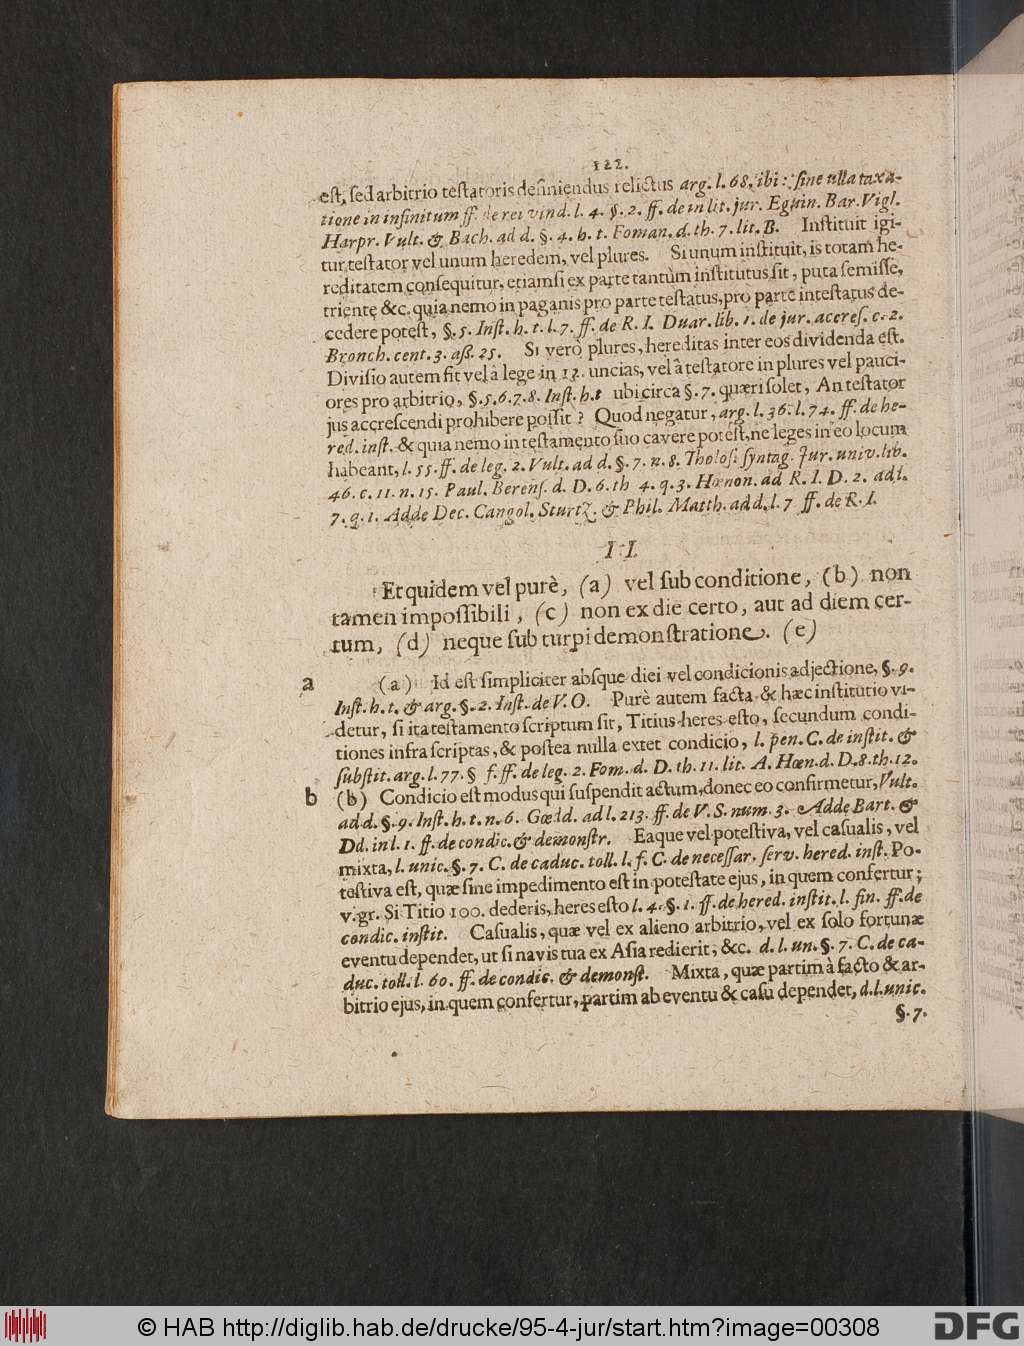 122.
est, sed arbitrio testatoris definiendus relictus arg. l. 68. ibi: sine ulla taxa-
tione in infinitum ff. de rei vind. l. 4. §. 2. ff. de in lit. jur. Eguin. Bar. Vigl.
Harpr. Vult. & Bach. ad d. §. 4. h. t. Foman. d. th. 7. lit. B. Instituit igi-
tur testator vel unum heredem, vel plures. Si unum instituit, is totam he-
reditatem consequitur, etiamsi ex parte tantùm institutus sit, puta semisse,
triente &c. quia nemo in paganis pro parte testatus, pro parte intestatus de-
cedere potest, §. 5. Inst. h. t. l. 7. ff. de R. I. Duar. lib. 1. de jur. accres. c. 2.
Bronch. cent. 3. aß. 25. Si verò plures, hereditas inter eos dividenda est.
Divisio autem fit vel à lege in 12. uncias, vel à testatore in plures vel pauci-
ores pro arbitrio, §. 5. 6. 7. 8. Inst. h. t ubi circa §. 7. quæri solet, An testator
jus accrescendi prohibere possit? Quod negatur, arg. l. 36. l. 74. ff. de he-
red. inst. & quia nemo in testamento suo cavere potest, ne leges in eo locum
habeant, l. 55. ff. de leg. 2. Vult. ad d. §. 7. n. 8. Tholos. syntag. Jur. univ. lib.
46. c. 11. n. 15. Paul. Berens. d. D. 6. th 4. q. 3. Hœnon. ad R. I. D. 2. ad l.
7. q. 1. Adde Dec. Cangol. Sturtz. & Phil. Matth. ad d. l. 7 ff. de R. I.
II.
Et quidem vel purè, (a) vel sub conditione, (b) non
tamen impossibili, (c) non ex die certo, aut ad diem cer-
tum, (d) neque sub turpi demonstratione. (e)
a (a) Id est simpliciter absque diei vel condicionis adjectione, §. 9.
Inst. h. t. & arg. §. 2. Inst. de V. O. Purè autem facta & hæc institutio vi-
detur, si ita testamento scriptum sit, Titius heres esto, secundum condi-
tiones infra scriptas, & postea nulla extet condicio, l. pen. C. de instit. &
substit. arg. l. 77. § f. ff. de leg. 2. Fom. d. D. th. 11. lit. A. Hœn. d. D. 8. th. 12.
b (b) Condicio est modus qui suspendit actum, donec eo confirmetur, Vult.
ad d. §. 9. Inst. h. t. n. 6. Gœdd. ad l. 213. ff. de V. S. num. 3. Adde Bart. &
Dd. in l. 1. ff. de condic. & demonstr. Eaque vel potestiva, vel casualis, vel
mixta, l. unic. §. 7. C. de caduc. toll. l. f. C. de necessar. serv. hered. inst. Po-
testiva est, quæ sine impedimento est in potestate ejus, in quem confertur;
v. gr. Si Titio 100. dederis, heres esto l. 4. §. 1. ff. de hered. instit. l. fin. ff. de
condic. instit. Casualis, quæ vel ex alieno arbitrio, vel ex solo fortunæ
eventu dependet, ut si navis tua ex Asia redierit, &c. d. l. un. §. 7. C. de ca-
duc. toll. l. 60. ff. de condic. & demonst. Mixta, quæ partim à facto & ar-
bitrio ejus, in quem confertur, partim ab eventu & casu dependet, d. l. unic.
§. 7.
© HAB http://diglib.hab.de/drucke/95-4-jur/start.htm?image=00308
DFG